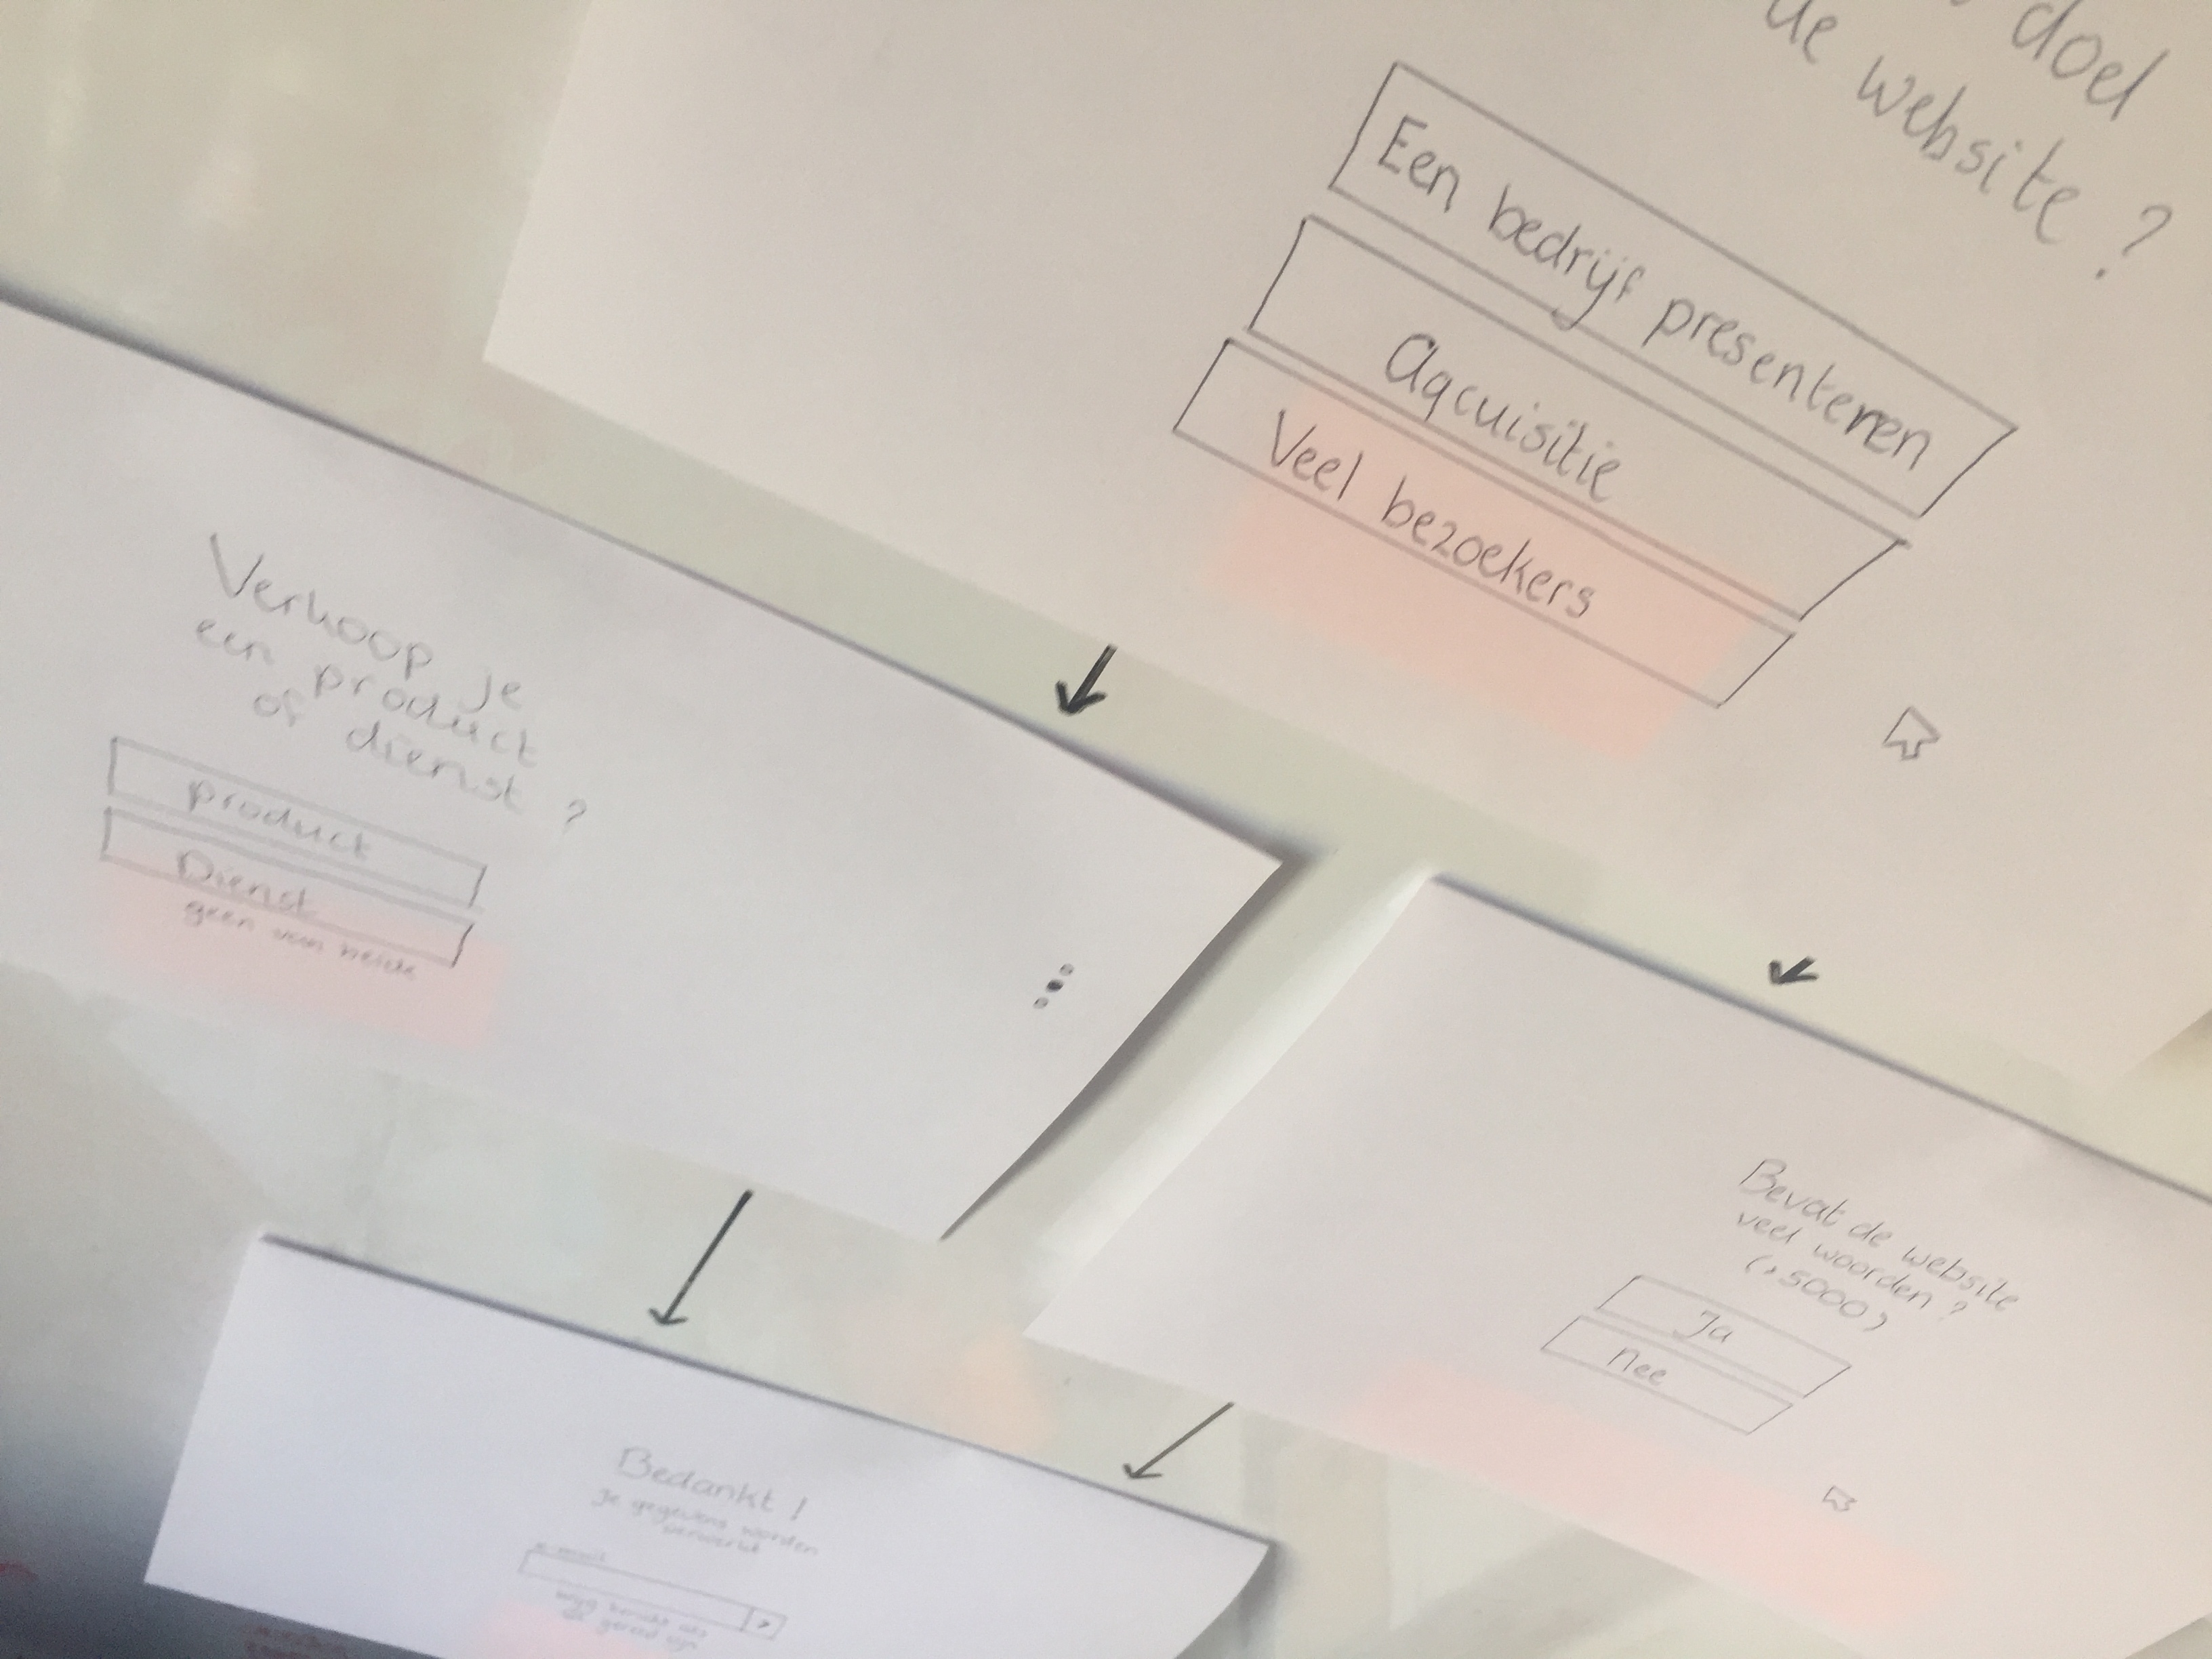 doel
de website ?
Een bedrijf presenteren
Aqcuisitie
Veel bezoekers
Verkoop je
een product
of dienst ?
product
Dienst
geen van beide
Bevat de website
veel woorden ?
(>5000)
Ja
nee
Bedankt !
Je gegevens worden
verwerkt